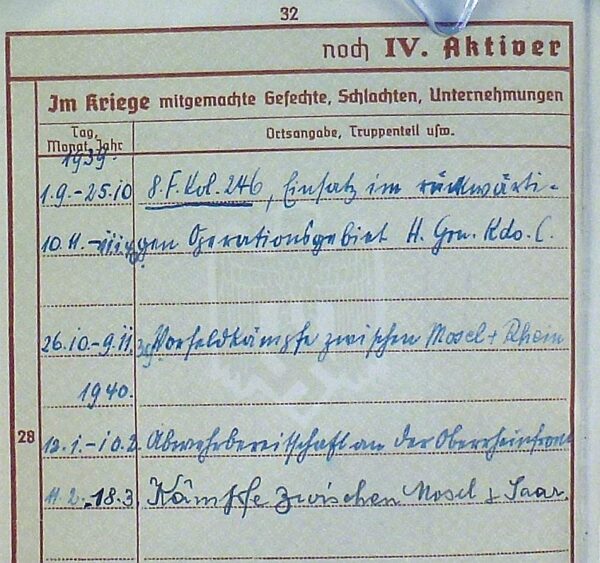 32
noch IV. Aktiver
Im Kriege mitgemachte Gefechte, Schlachten, Unternehmungen
Tag, Monat, Jahr
Ortsangabe, Truppenteil usw.
1939.
1.9.-25.10 8. F. Kol. 246, Einsatz im rückwärti-
10.11.- gen Operationsgebiet H. Gru. Kdo. C.
26.10.-9.11. Vorfeldkämpfe zwischen Mosel + Rhein
1940.
28
12.1.-10.2. Abwehrbereitschaft an der Oberrheinfront
11.2.-18.3. Kämpfe zwischen Mosel + Saar.